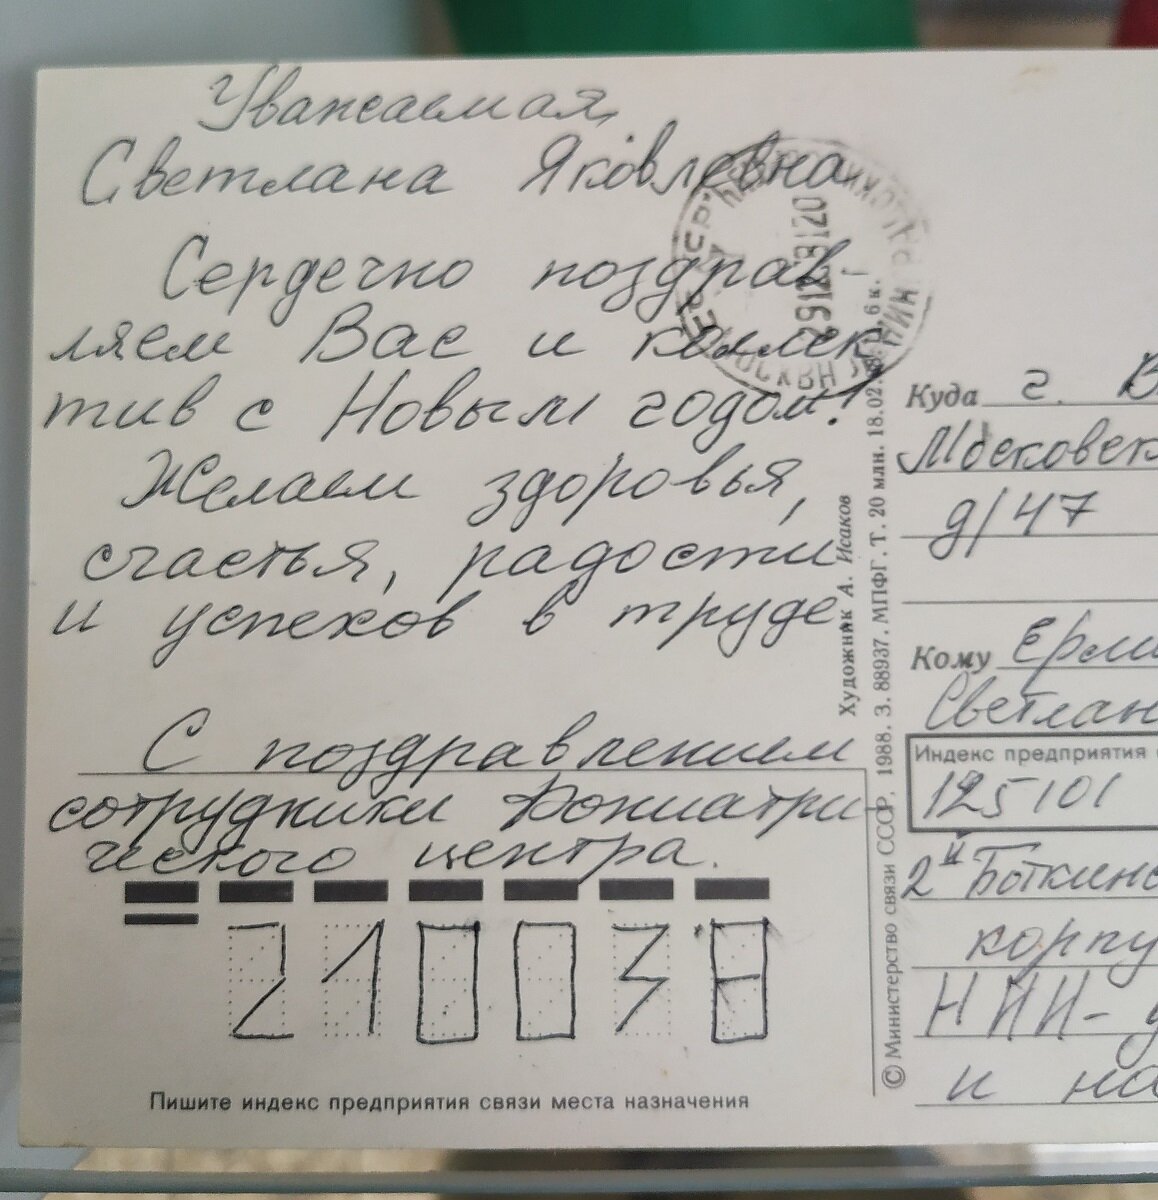 Уважаемая
Светлана Яковлевна
Сердечно поздрав-
ляем Вас и коллек
тив с Новым годом!
Желаем здоровья,
счастья, радости
и успехов в труде
С поздравлением
сотрудники Фониатри-
ческого центра.
210038
Пишите индекс предприятия связи места назначения
Художник А. Исаков
© Министерство связи СССР. 1988. З. 88937. МПФГ. Т. 20 млн. 18.02. 6 к.
Куда г. В
Московск
д/47
Кому Ерм
Светлан
Индекс предприятия
125101
2й Боткинс
корпу
НИИ-
и